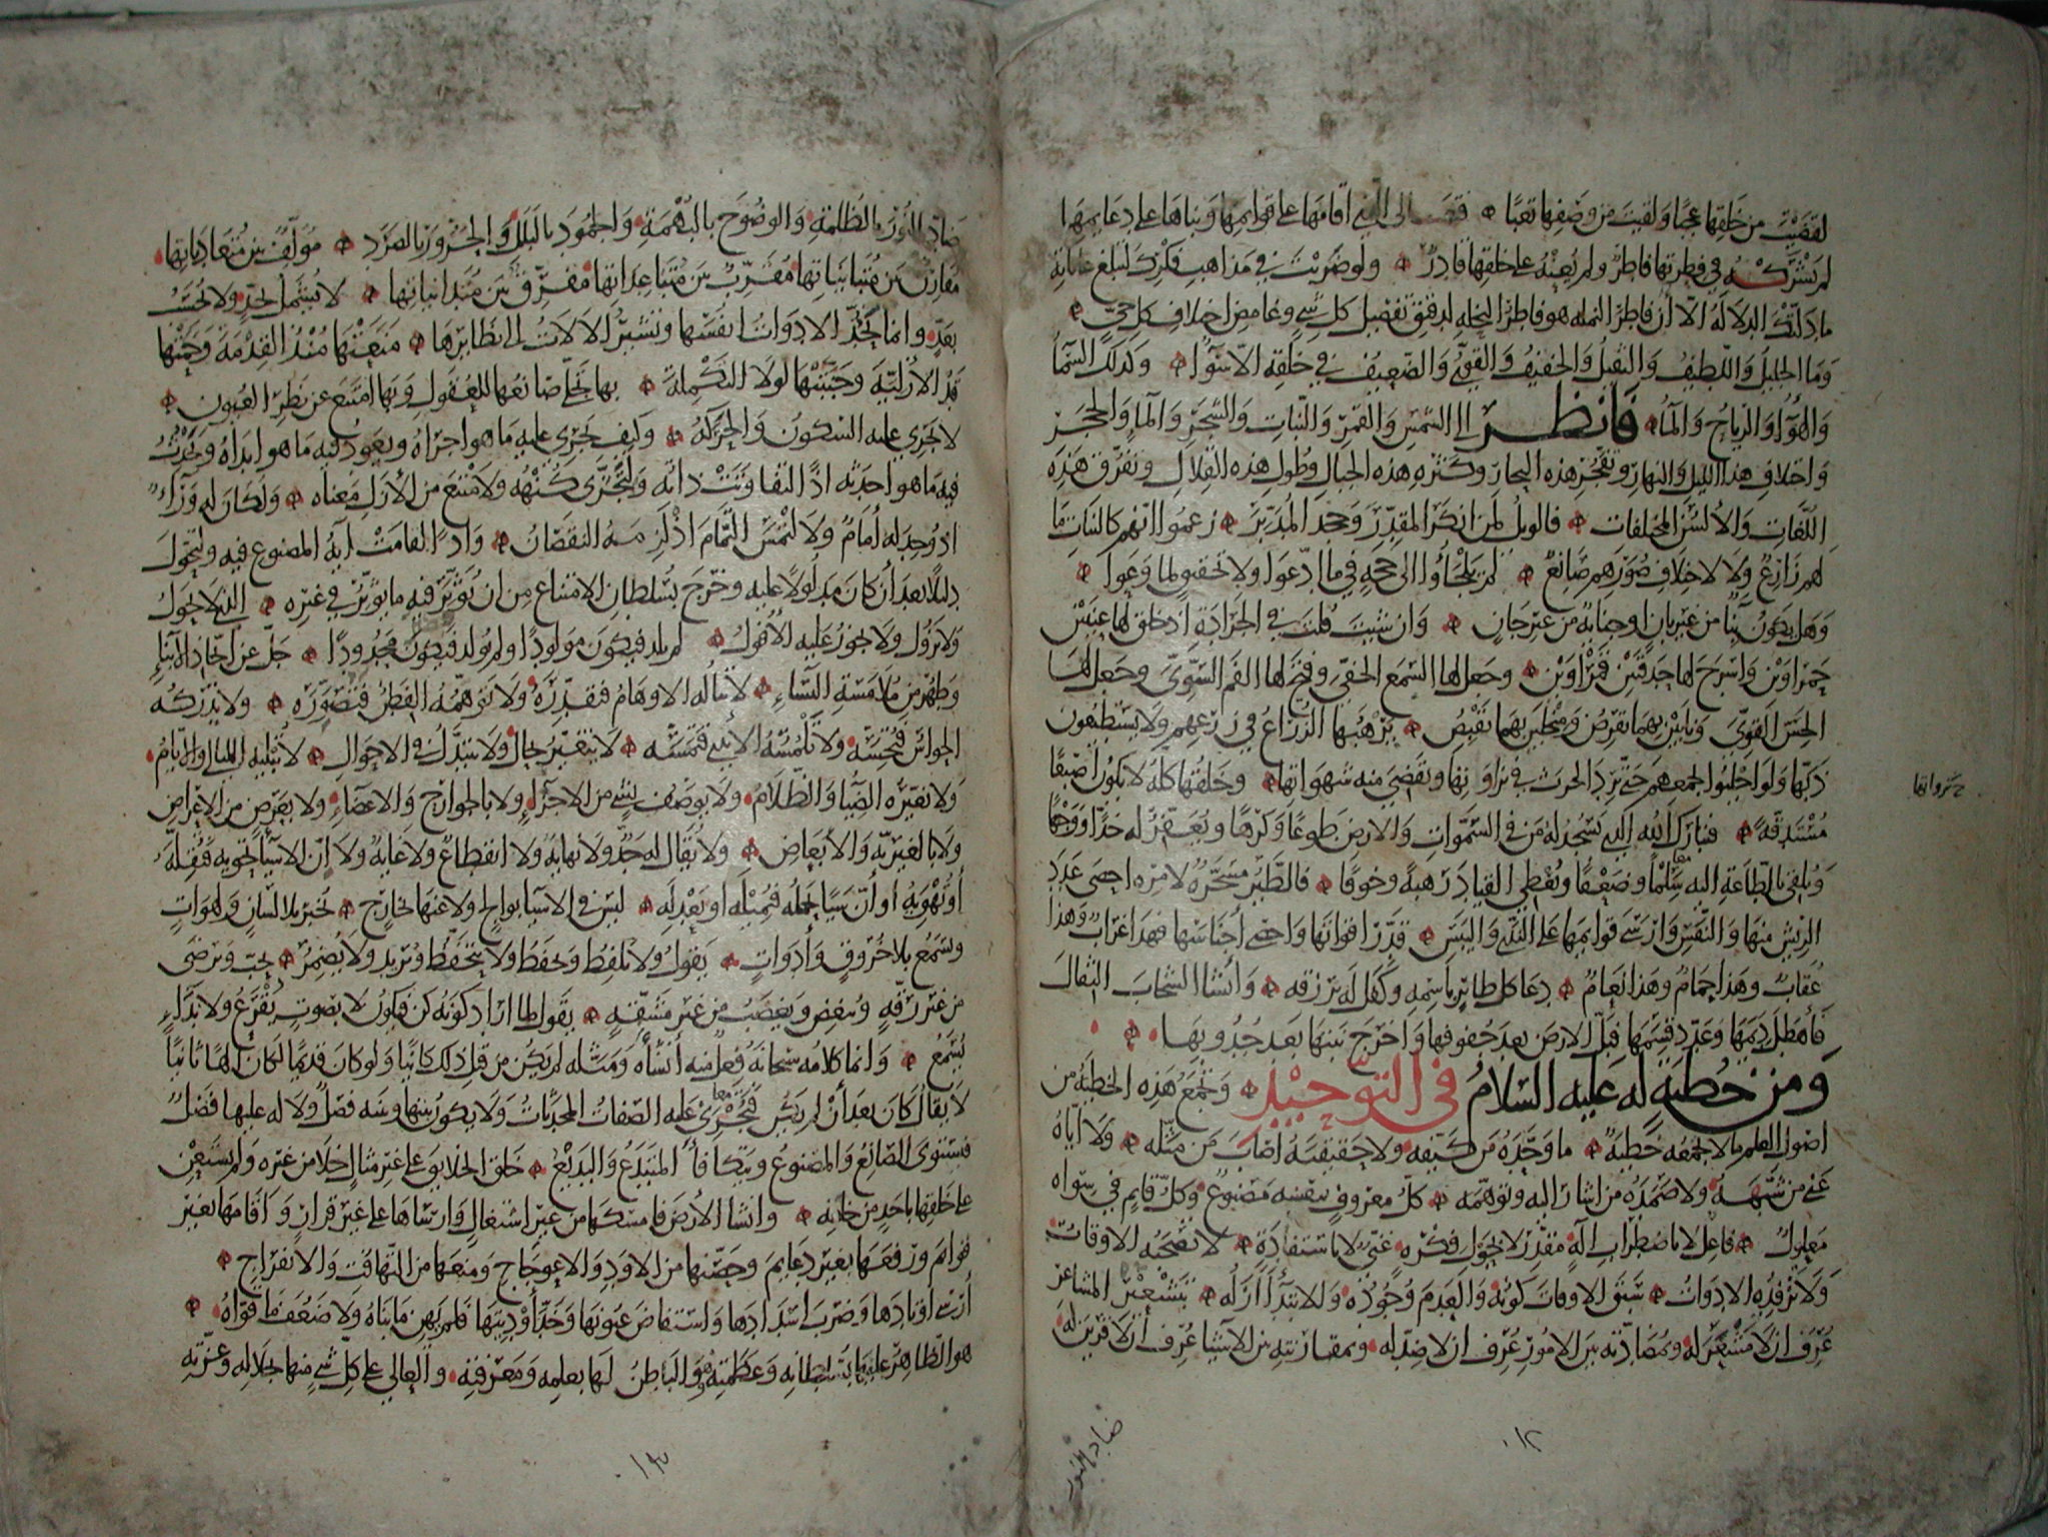 لقضيت من خلقها عجبا ولقيت من وصفها تعبا فتعالى الذي اقامها على قوايمها وبناها على دعايمها
لم يشركه في فطرتها فاطر ولم يعنه على خلقها قادر ولو ضربت في مذاهب فكرك لتبلغ غاياته
ما دلتك الدلالة الا ان فاطر النمله هو فاطر النخله لدقيق تفصيل كل شي وغامض اختلاف كل حي
وما الجليل واللطيف والثقيل والخفيف والقوي والضعيف في خلقه الا سوا وكذلك السما
والهوا والرياح والما فانظر الى الشمس والقمر والنبات والشجر والما والحجر
واختلاف هذا الليل والنهار وتفجر هذه البحار وكثره هذه الجبال وطول هذه القلال وتفرق هذه
اللغات والالسن المختلفات فالويل لمن انكر المقدر وجحد المدبر زعموا انهم كالنبات ما
لهم زارع ولا لاختلاف صورهم صانع لم يلجاوا الى حجه في ما ادعوا ولا تحقيق لما وعوا
وهل يكون بنا من غير بان او جنايه من غير جان وان شيت قلت في الجراده اذ خلق لها عينين
حمراوين واسرج لها حدقتين قمراوين وجعل لها السمع الخفي وفتح لها الفم السوي وجعل لها
الحس القوي ونابين بهما تقرض ومنجلين بهما تقبض يرهبها الزراع في زرعهم ولا يستطيعون
ذبها ولو اجلبوا بجمعهم حتى ترد الحرث في نزواتها وتقضي منه شهواتها وخلقها كله لا يكون اصبعا
مستدقه فتبارك الله الذي يسجد له من في السموات والارض طوعا وكرها ويعفر له خدا ووجها
ويلقي بالطاعة اليه سلما وضعفا ويعطي القياد رهبه وخوفا فالطير مسخره لامره احصى عدد
الريش منها والنفس وارسى قوايمها على الندى واليبس قدر اقواتها واحصى اجناسها فهذا غراب وهذا
عقاب وهذا حمام وهذا نعام دعا كل طاير باسمه وكفل له برزقه وانشا السحاب الثقال
فاهطل ديمها وعدد قسمها فبل الارض بعد جفوفها واخرج نبتها بعد جدوبها
ومن خطبة له عليه السلام في التوحيد وتجمع هذه الخطبة من
اصول العلم ما لا تجمعه خطبة ما وحده من كيفه ولا حقيقته اصاب من مثله ولا اياه
عنى من شبهه ولا صمده من اشار اليه وتوهمه كل معروف بنفسه مصنوع وكل قايم في سواه
معلول فاعل لا باضطراب آلة مقدر لا بجول فكره غني لا باستفادة لا تصحبه الاوقات
ولا ترفده الادوات سبق الاوقات كونه والعدم وجوده والابتدا ازله بتشعيره المشاعر
عرف ان لا مشعر له وبمضادته بين الامور عرف ان لا ضد له وبمقارنته بين الاشيا عرف ان لا قرين له
نزواتها
ضاد النور
ضاد النور بالظلمة والوضوح بالبهمة والجمود بالبلل والحرور بالصرد مولف بين متعادياتها
مقارن بين متبايناتها مقرب بين متباعداتها مفرق بين متدانياتها لا يشمل بحد ولا يحسب
بعد وانما تحد الادوات انفسها وتشير الآلات الى نظايرها منعتها منذ القدمة وحمتها
قد الازلية وجنبتها لولا التكملة بها تجلى صانعها للعقول وبها امتنع عن نظر العيون
لا يجري عليه السكون والحركه وكيف يجري عليه ما هو اجراه ويعود فيه ما هو ابداه ويحدث
فيه ما هو احدثه اذا لتفاوتت ذاته ولتجزى كنهه ولامتنع من الازل معناه ولكان له ورآ
اذ وجد له امام ولالتمس التمام اذ لزمه النقصان واذا لقامت آية المصنوع فيه ولتحول
دليلا بعد ان كان مدلولا عليه وخرج بسلطان الامتناع من ان يوثر فيه ما يوثر في غيره الذي لا يحول
ولا يزول ولا يجوز عليه الافول لم يلد فيكون مولودا ولم يولد فيكون محدودا جل عن اتخاذ الابناء
وطهر من ملامسة النساء لا تناله الاوهام فتقدره ولا تتوهمه الفطن فتصوره ولا تدركه
الحواس فتحسه ولا تلمسه الايدي فتمسه لا يتغير بحال ولا يتبدل في الاحوال لا تبليه الليالي والايام
ولا يغيره الضيا والظلام ولا يوصف بشي من الاجزاء ولا بالجوارح والاعضاء ولا بعرض من الاعراض
ولا بالغيرية والابعاض ولا يقال له حد ولا نهاية ولا انقطاع ولا غاية ولا ان الاشيا تحويه فتقله
او تهويه او ان شيا يحمله فيميله او يعدله ليس في الاشيا بوالج ولا عنها خارج يخبر بلا لسان ولهوات
ويسمع بلا خروق وادوات يقول ولا يلفظ ويحفظ ولا يتحفظ ويريد ولا يضمر يحب ويرضى
من غير رقة ويبغض ويغضب من غير مشقة يقول لما اراد كونه كن فيكون لا بصوت يقرع ولا نداء
يسمع وانما كلامه سبحانه فعل منه انشأه ومثله لم يكن من قبل ذلك كاينا ولو كان قديما لكان الها ثانيا
لا يقال كان بعد ان لم يكن فتجري عليه الصفات المحدثات ولا يكون بينها وبينه فصل ولا له عليها فضل
فيستوي الصانع والمصنوع ويتكافأ المبتدع والبديع خلق الخلايق على غير مثال خلا من غيره ولم يستعن
على خلقها باحد من خلقه وانشا الارض فامسكها من غير اشتغال وارساها على غير قرار واقامها بغير
قوايم ورفعها بغير دعايم وحصنها من الاود والاعوجاج ومنعها من التهافت والانفراج
ارسى اوتادها وضرب اسدادها واستفاض عيونها وخد اوديتها فلم يهن ما بناه ولا ضعف ما قواه
هو الظاهر عليها بسلطانه وعظمته وهو الباطن لها بعلمه ومعرفته والعالي على كل شي منها بجلاله وعزته